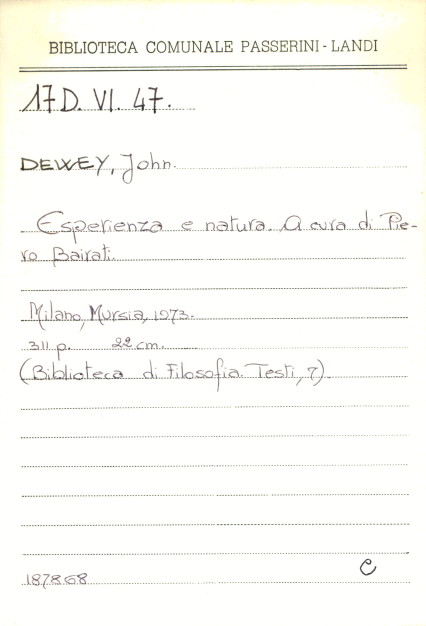 BIBLIOTECA COMUNALE PASSERINI - LANDI
17 D. VI. 47.
DEWEY, John.
Esperienza e natura. A cura di Pie-
ro Bairati.
Milano, Mursia, 1973.
311 p. 22 cm.
(Biblioteca di Filosofia. Testi, 7).
C
187868